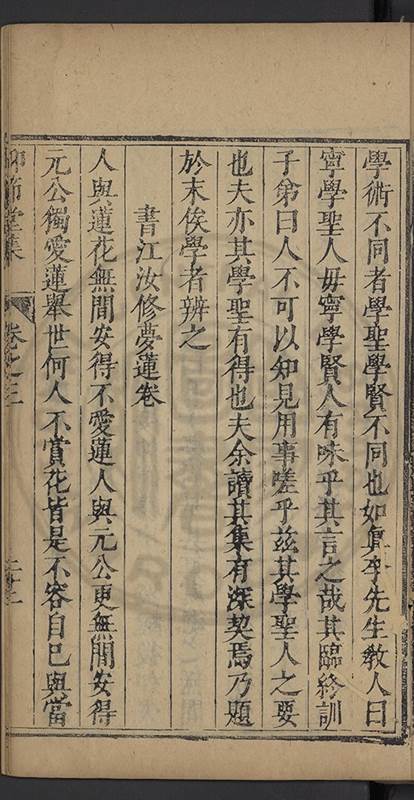 學術不同者學聖學賢不同也如真李先生教人曰
寧學聖人毋寧學賢人有味乎其言之哉其臨終訓
子弟曰人不可以知見用事嗟乎茲其學聖人之要
也夫亦其學聖有得也夫余讀其集有深契焉乃題
於末俟學者辨之
書江汝修夢蓮卷
人與蓮花無間安得不愛蓮人與元公更無間安得
元公獨愛蓮舉世何人不賞花皆是不容自已與當
節堂集
卷之三